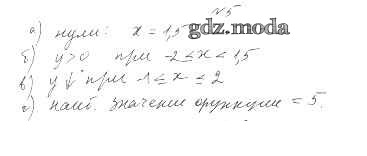 №5
а) нули: x = 1,5 gdz.moda
б) y>0 при -2≤x<1,5
в) y↓ при -1≤x≤2
г) наиб. значение функции = 5.